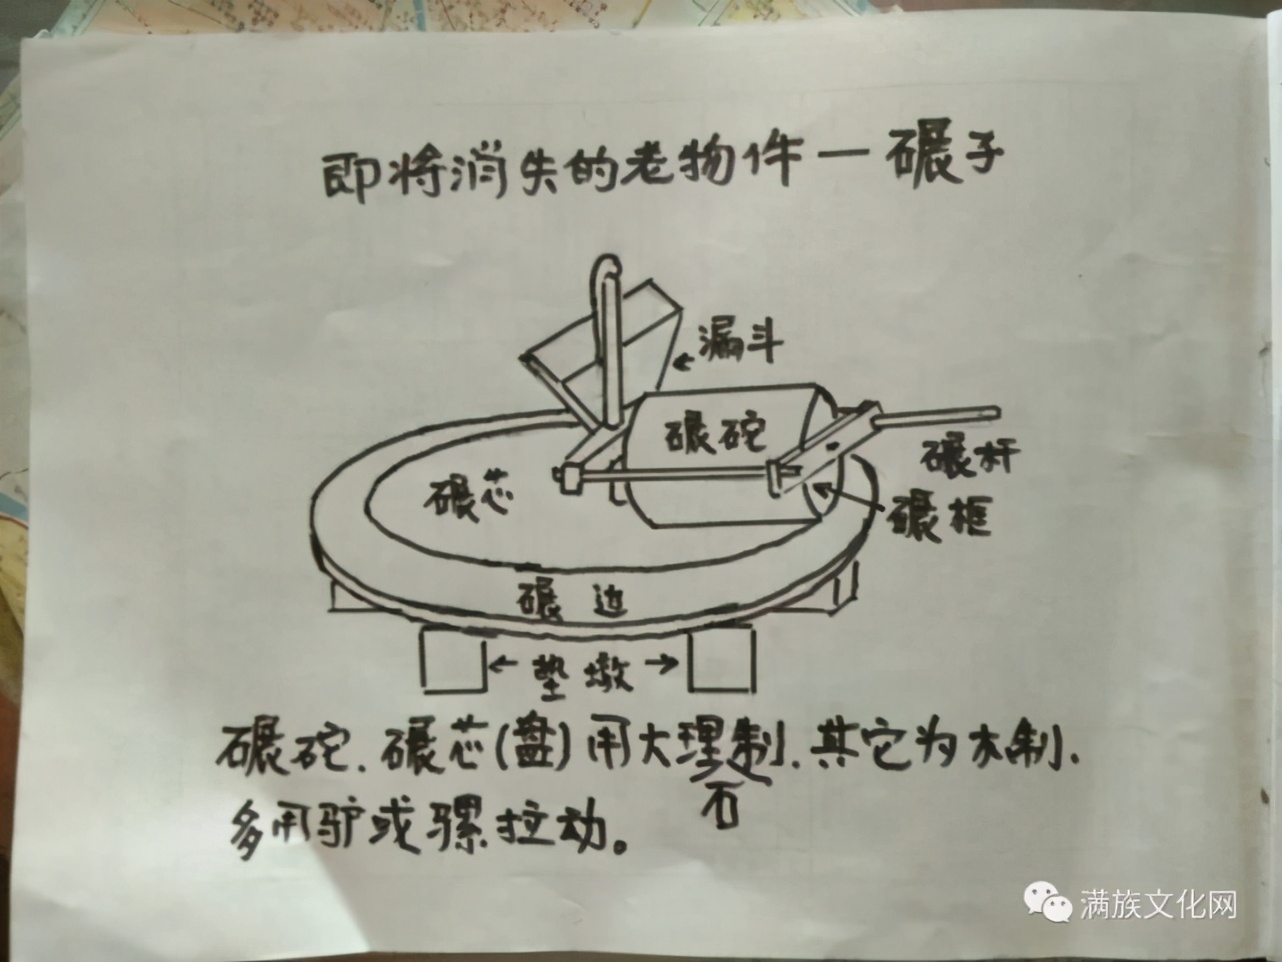 即将消失的老物件一碾子
漏斗
碾砣
碾杆
碾芯
碾框
碾边
垫墩
碾砣.碾芯(盘)用大理石制.其它为木制.
多用驴或骡拉动。
满族文化网